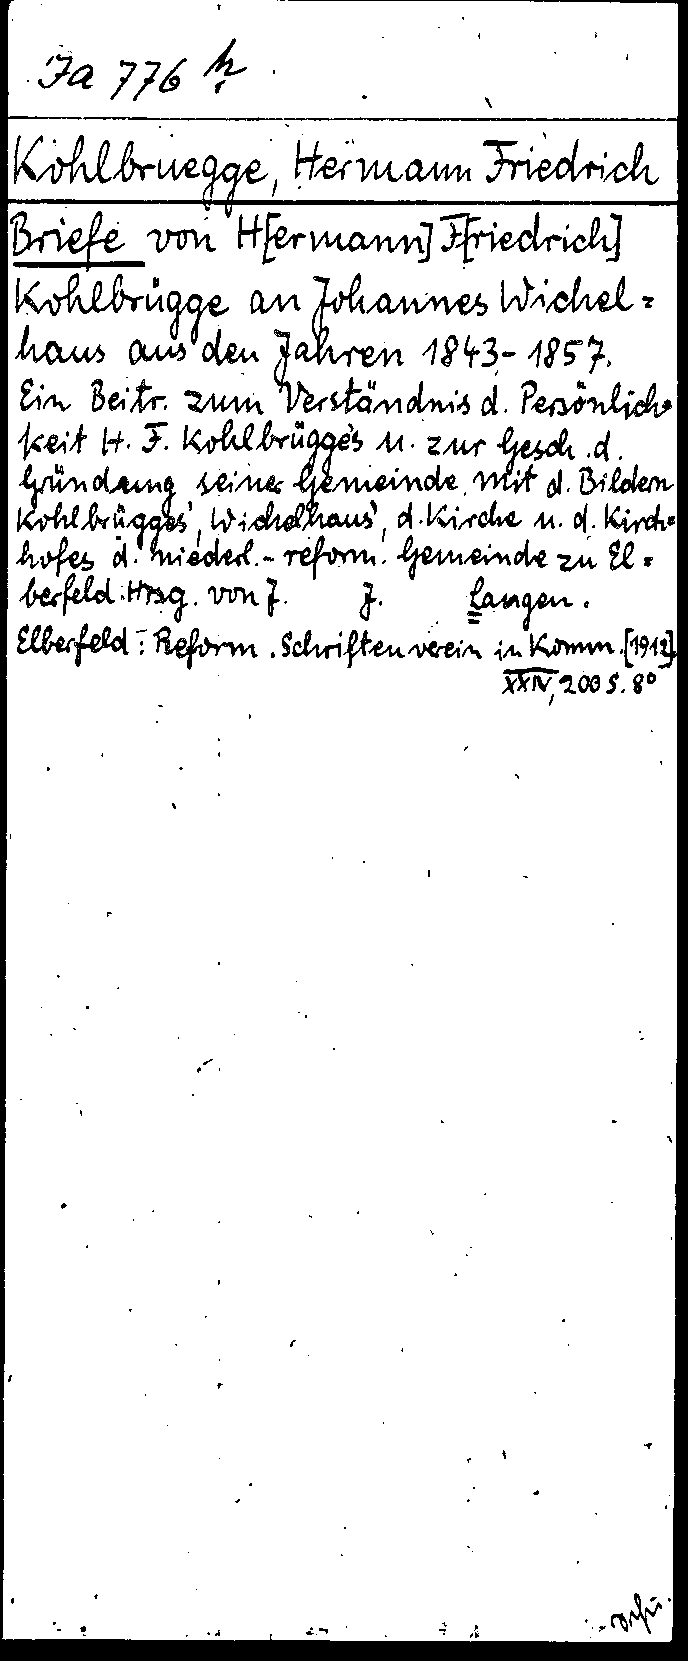 Ja 776 h
Kohlbruegge, Hermann Friedrich
Briefe von H[ermann] F[riedrich]
Kohlbrügge an Johannes Wichel=
haus aus den Jahren 1843-1857.
Ein Beitr. zum Verständnis d. Persönlich=
keit H. F. Kohlbrügges u. zur Gesch. d.
Gründung seiner Gemeinde. Mit d. Bildern
Kohlbrügges', Wichelhaus', d. Kirche u. d. Kirch=
hofes d. niederl.-reform. Gemeinde zu El=
berfeld. Hrsg. von J. J. Langen.
Elberfeld: Reform. Schriftenverein in Komm. [1912].
XXIV, 200 S. 8°